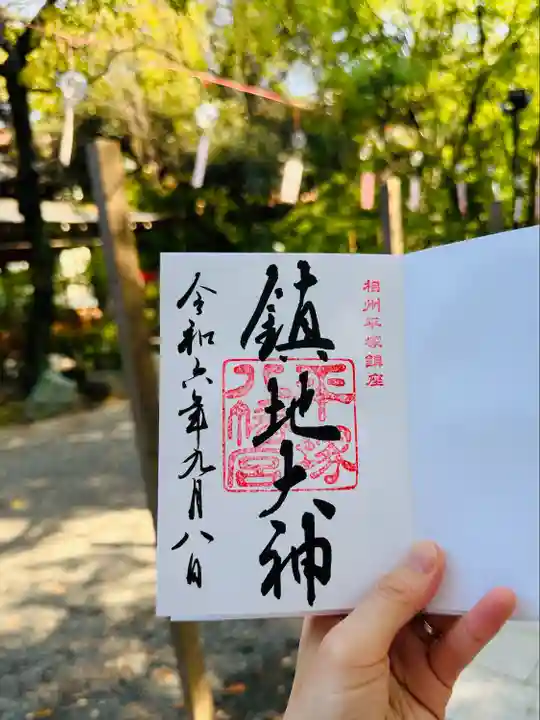 相州平塚鎮座
鎮地大神
平塚
八幡宮
令和六年九月八日